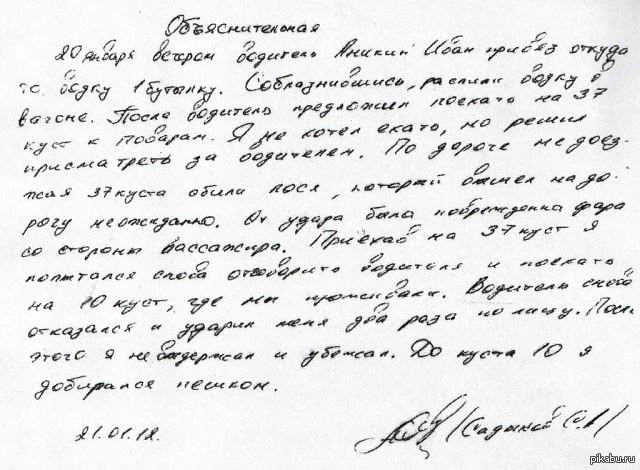 Объяснительная
20 января вечером водитель Аникин Иван привёз откуда
то водку 1 бутылку. Соблазнившись, распили водку в
вагоне. После водитель предложил поехать на 37
куст к поварам. Я не хотел ехать, но решил
присмотреть за водителем. По дороге не доез-
жая 37 куста сбили лося, который вышел на до-
рогу неожиданно. От удара была повреждена фара
со стороны пассажира. Приехав на 37 куст я
попытался снова отговорить водителя и поехать
на 10 куст, где мы проживали. Водитель снова
отказался и ударил меня два раза по лицу. После
этого я не выдержал и убежал. До куста 10 я
добирался пешком.
21.01.12.
pikabu.ru